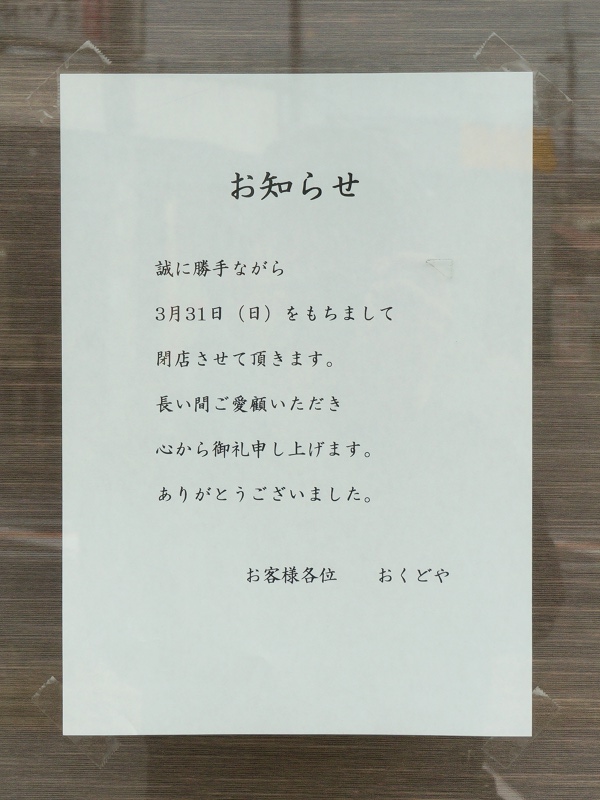 お知らせ
誠に勝手ながら
3月31日（日）をもちまして
閉店させて頂きます。
長い間ご愛顧いただき
心から御礼申し上げます。
ありがとうございました。
お客様各位　　おくどや